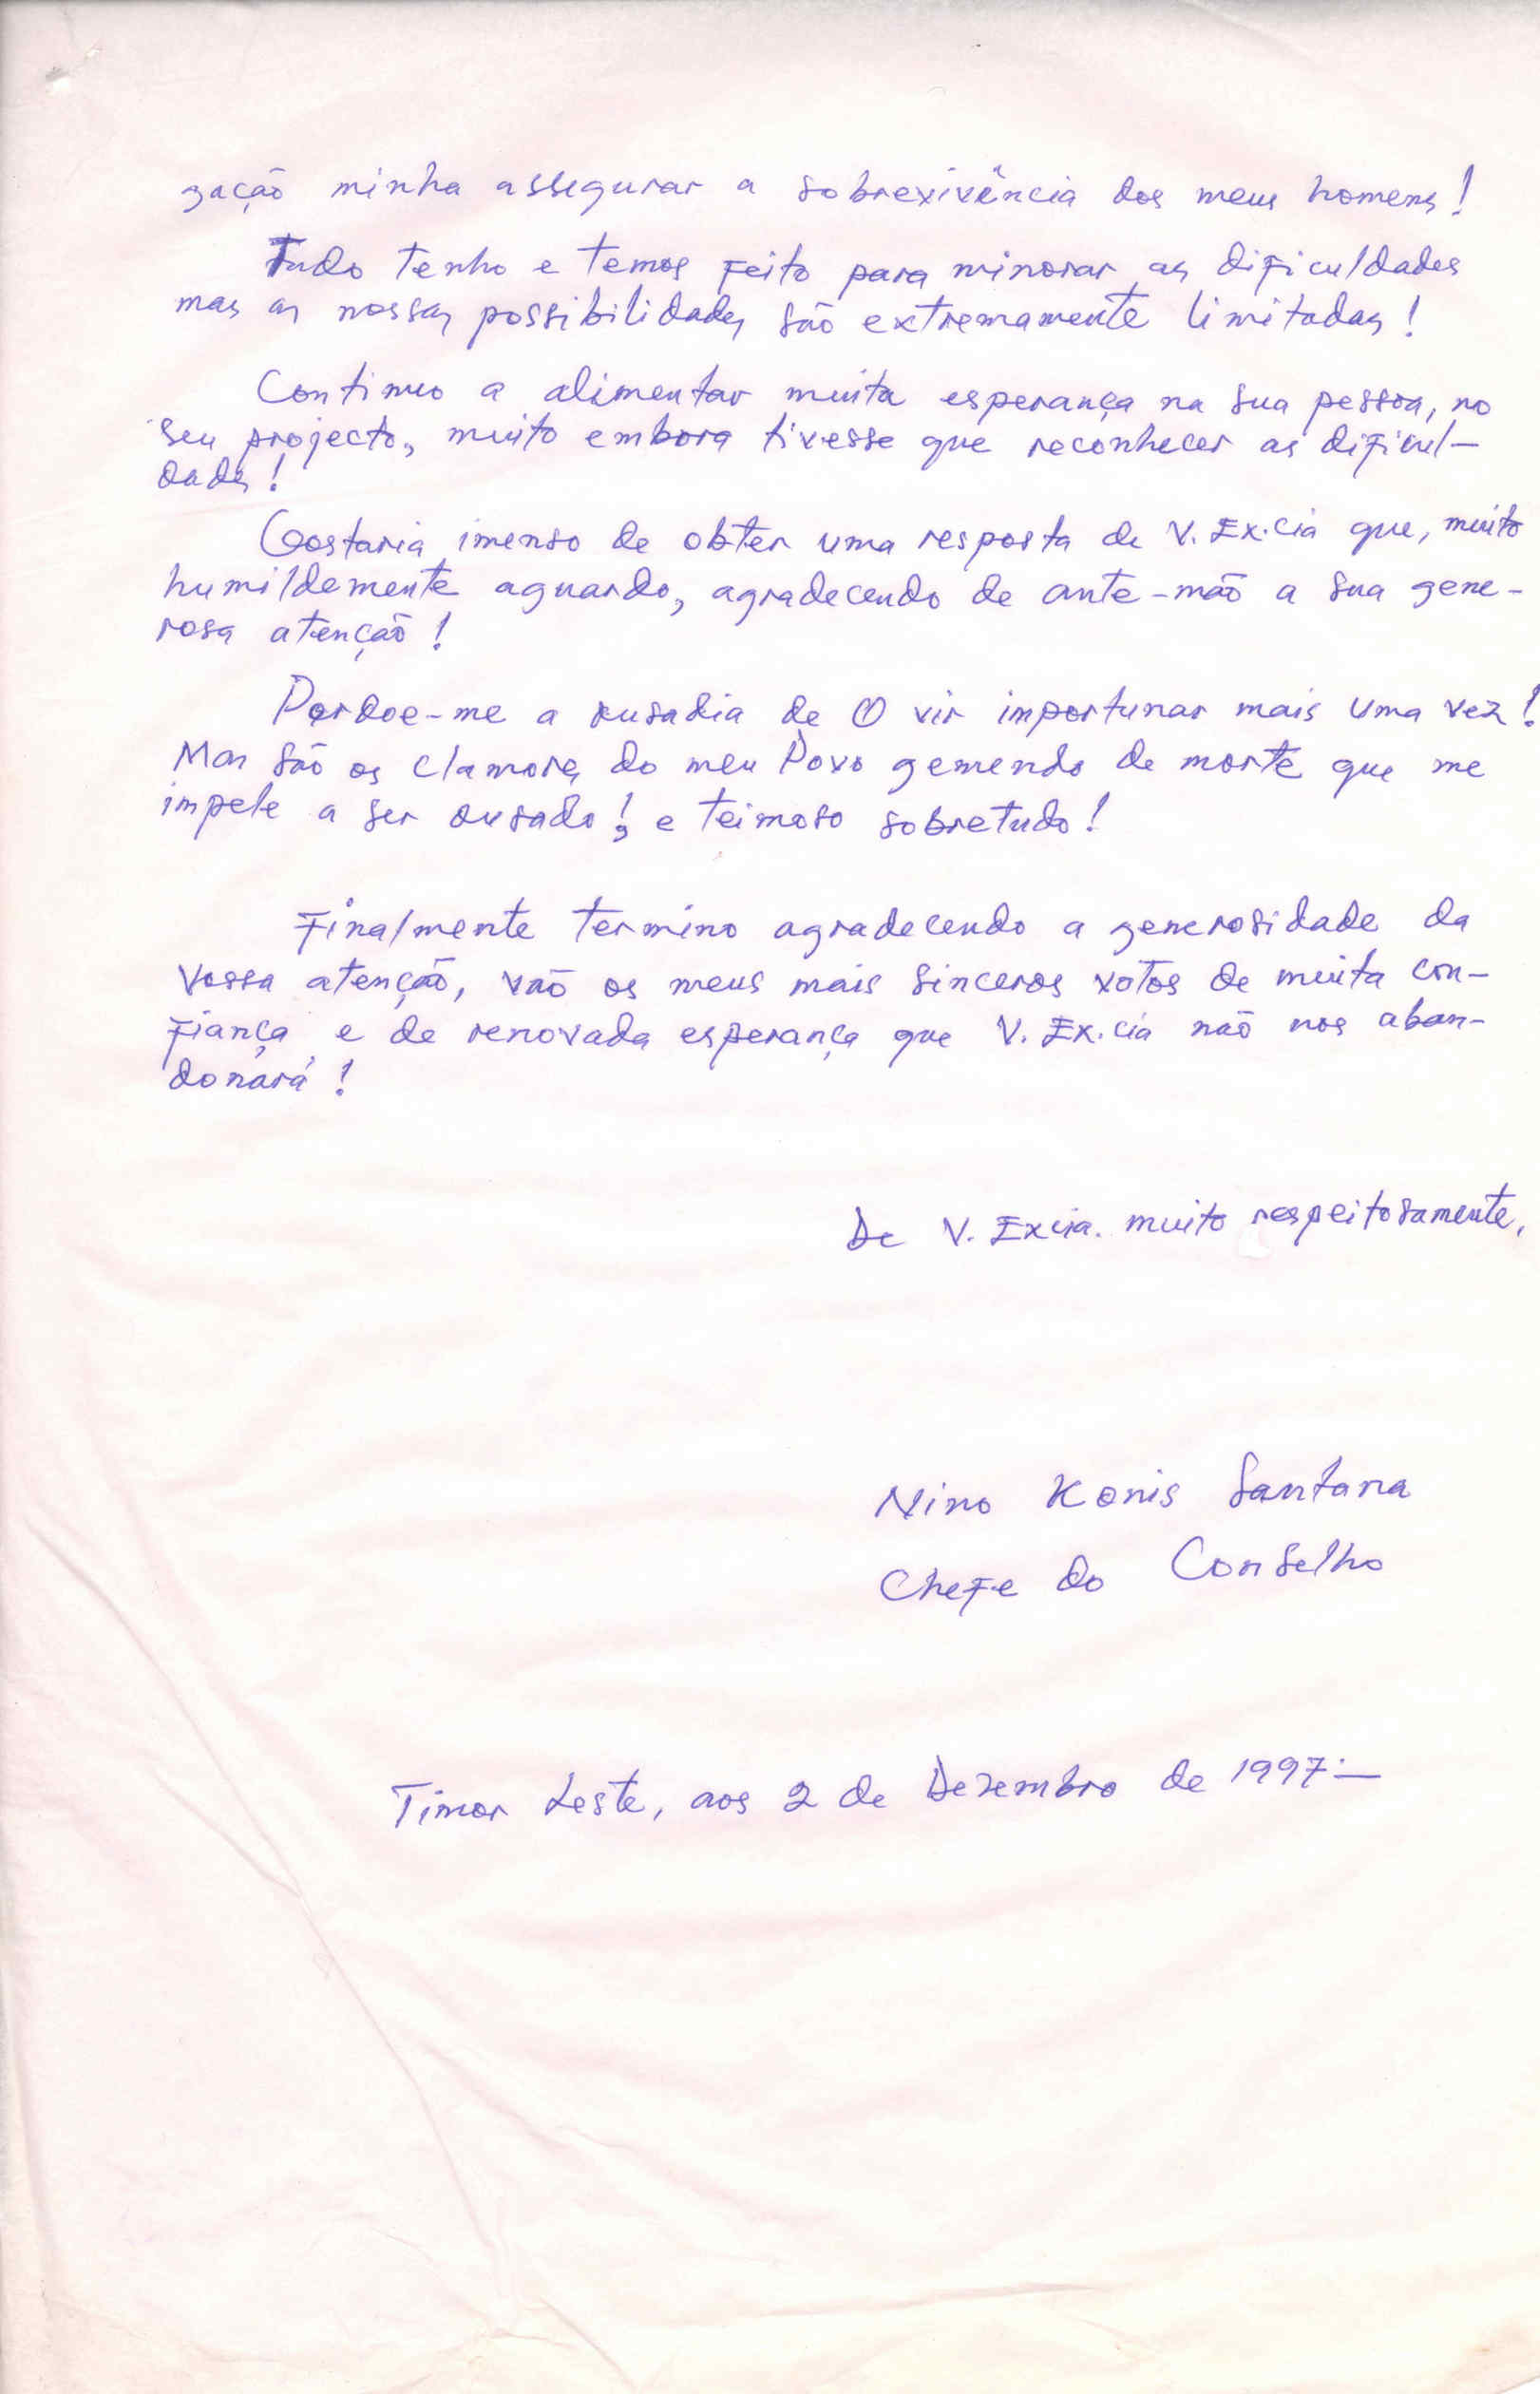 gação minha assegurar a sobrevivência dos meus homens!
Tudo tenho e temos feito para minorar as dificuldades
mas as nossas possibilidades são extremamente limitadas!
Continuo a alimentar muita esperança na sua pessoa, no
seu projecto, muito embora tivesse que reconhecer as dificul-
dades!
Gostaria imenso de obter uma resposta de V. Ex.cia que, muito
humildemente aguardo, agradecendo de ante-mão a sua gene-
rosa atenção!
Perdoe-me a ousadia de O vir importunar mais uma vez!
Mas são os clamores do meu Povo gemendo de morte que me
impele a ser ousado!, e teimoso sobretudo!
Finalmente termino agradecendo a generosidade da
Vossa atenção, vão os meus mais sinceros votos de muita con-
fiança e de renovada esperança que V. Ex.cia não nos aban-
donará!
De V. Excia. muito respeitosamente,
Nino Konis Santana
Chefe do Conselho
Timor Leste, aos 2 de Dezembro de 1997.—